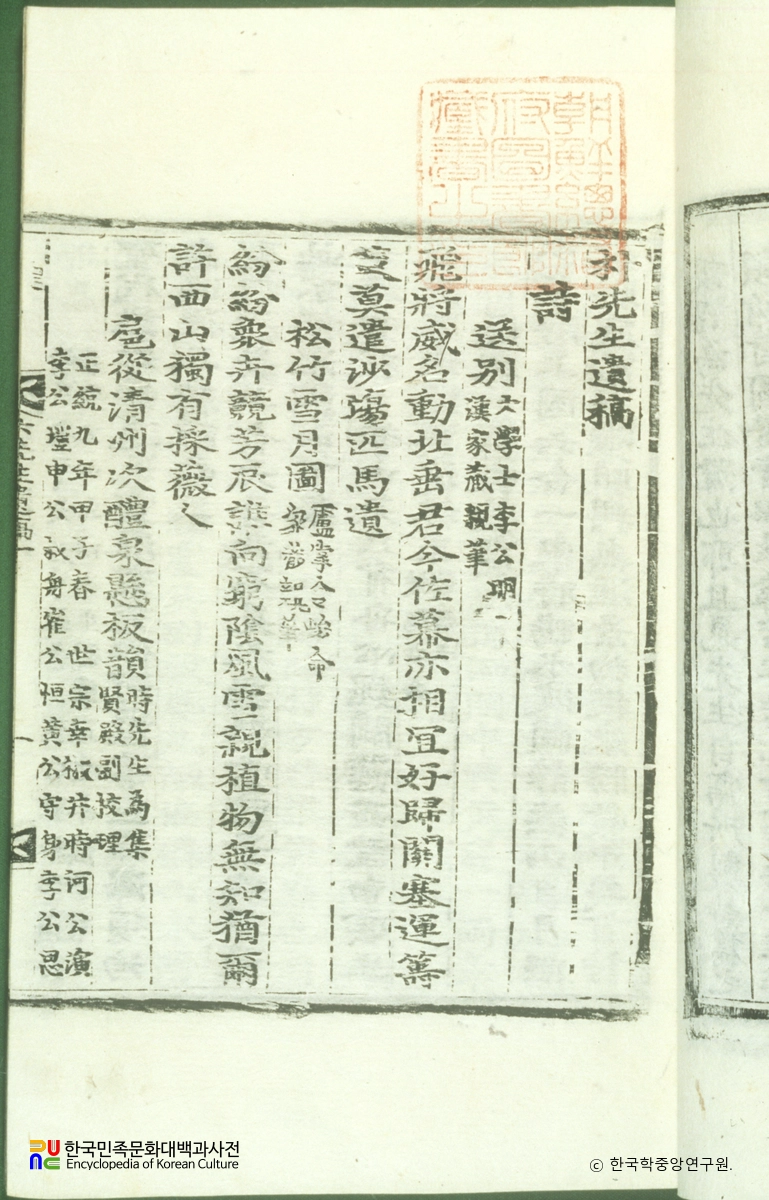 朴先生遺稿
詩
送別 大學士李公明
漢家藏親筆
飛將威名動北垂君今佐幕亦相宜好歸關塞運籌
莫遣沙場匹馬遺
松竹雪月圖
紛紛衆卉競芳辰誰向窮陰風雪親植物無知猶爾
許西山獨有採薇人
扈從淸州次醴泉懸板韻 時先生爲集
賢殿副校理
正統九年甲子春 世宗幸椒井時河公演
李公塏申公叔舟崔公恒黃公守身李公思
六先生遺稿一
一
한국민족문화대백과사전
Encyclopedia of Korean Culture
© 한국학중앙연구원.